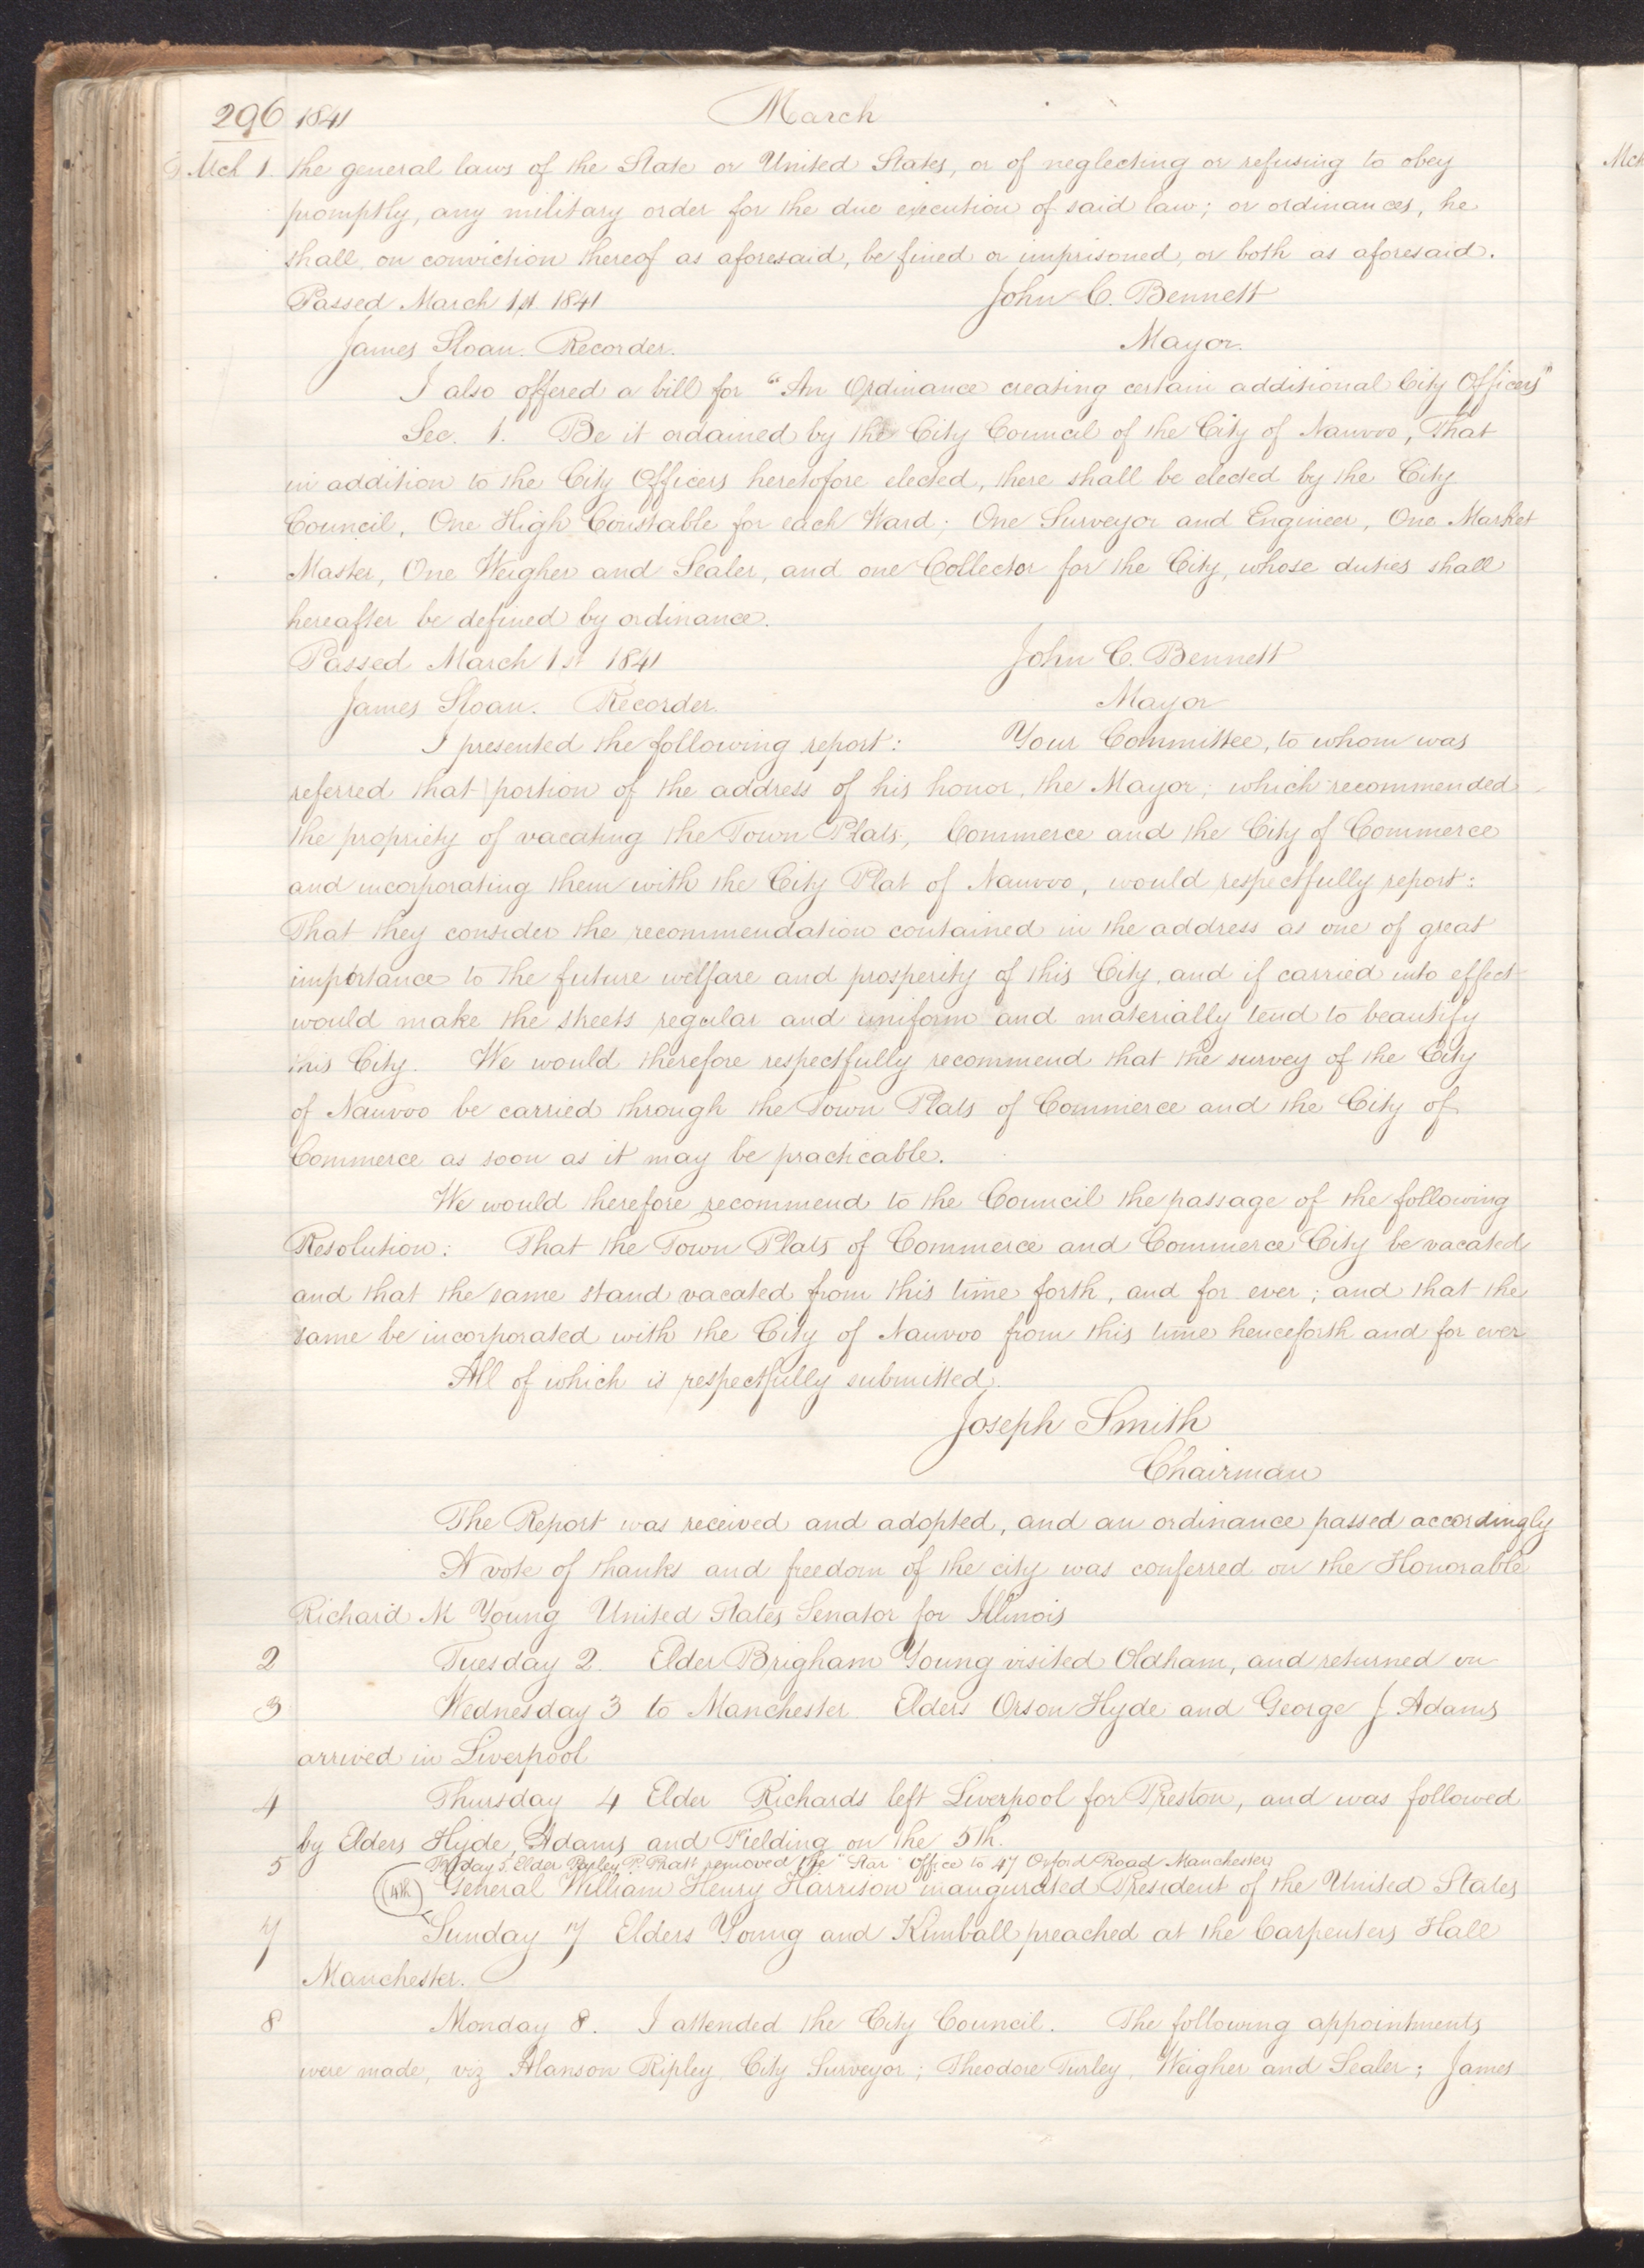 296 1841 March
Mch 1. the general laws of the State or United States, or of neglecting or refusing to obey
promptly, any military order for the due execution of said law; or ordinances, he
shall, on conviction thereof as aforesaid, be fined or imprisoned, or both as aforesaid.
Passed March 1st. 1841 John C. Bennett
James Sloan. Recorder. Mayor.
I also offered a bill for "An Ordinance creating certain additional City Officers"
Sec. 1. Be it ordained by the City Council of the City of Nauvoo, That
in addition to the City Officers heretofore elected, there shall be elected by the City
Council, One High Constable for each Ward; One Surveyor and Engineer, One Market
Master, One Weigher and Sealer, and one Collector for the City, whose duties shall
hereafter be defined by ordinance.
Passed March 1st 1841 John C. Bennett
James Sloan. Recorder. Mayor
I presented the following report: Your Committee, to whom was
referred that portion of the address of his honor, the Mayor; which recommended
the propriety of vacating the Town Plats, Commerce and the City of Commerce
and incorporating them with the City Plat of Nauvoo, would respectfully report:
That they consider the recommendation contained in the address as one of great
importance to the future welfare and prosperity of this City, and if carried into effect
would make the streets regular and uniform and materially tend to beautify
this City. We would therefore respectfully recommend that the survey of the City
of Nauvoo be carried through the Town Plats of Commerce and the City of
Commerce as soon as it may be practicable.
We would therefore recommend to the Council the passage of the following
Resolution: That the Town Plats of Commerce and Commerce City be vacated
and that the same stand vacated from this time forth, and for ever; and that the
same be incorporated with the City of Nauvoo from this time henceforth and for ever
All of which is respectfully submitted.
Joseph Smith
Chairman
The Report was received and adopted, and an ordinance passed accordingly
A vote of thanks and freedom of the city was conferred on the Honorable
Richard M Young United States Senator for Illinois
2 Tuesday 2. Elder Brigham Young visited Oldham, and returned on
3 Wednesday 3 to Manchester. Elders Orson Hyde and George J Adams
arrived in Liverpool
4 Thursday 4 Elder Richards left Liverpool for Preston, and was followed
by Elders Hyde, Adams and Fielding on the 5th.
5 Friday 5. Elder Parley P. Pratt removed the "Star" office to 47 Oxford Road Manchester
(4th) General William Henry Harrison inaugurated President of the United States
7 Sunday 7 Elders Young and Kimball preached at the Carpenters Hall
Manchester.
8 Monday 8. I attended the City Council. The following appointments
were made, viz Alanson Ripley, City Surveyor; Theodore Turley, Weigher and Sealer; James
Mch